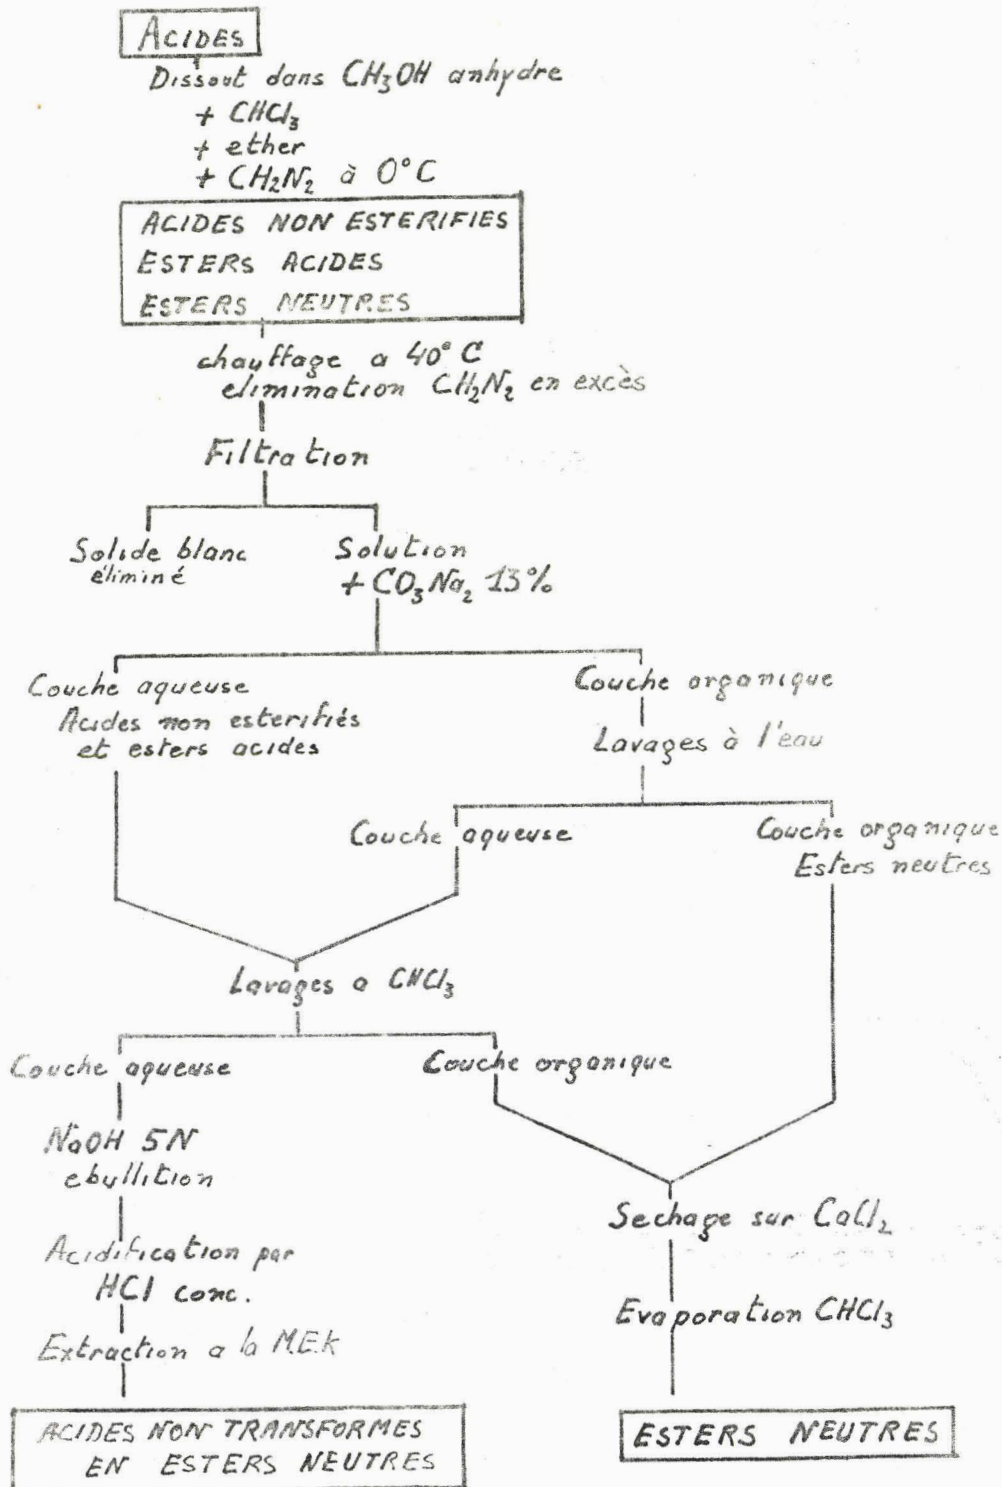 ACIDES
Dissout dans CH₃OH anhydre
+ CHCl₃
+ ether
+ CH₂N₂ à 0°C
ACIDES NON ESTERIFIES
ESTERS ACIDES
ESTERS NEUTRES
chauffage a 40°C
elimination CH₂N₂ en excès
Filtration
Solide blanc
éliminé
Solution
+ CO₃Na₂ 13%
Couche aqueuse
Acides non esterifiés
et esters acides
Couche organique
Lavages à l'eau
Couche aqueuse
Couche organique
Esters neutres
Lavages a CHCl₃
Couche aqueuse
Couche organique
NaOH 5N
ebullition
Acidification par
HCl conc.
Extraction a la M.E.K
ACIDES NON TRANSFORMES
EN ESTERS NEUTRES
Sechage sur CaCl₂
Evaporation CHCl₃
ESTERS NEUTRES